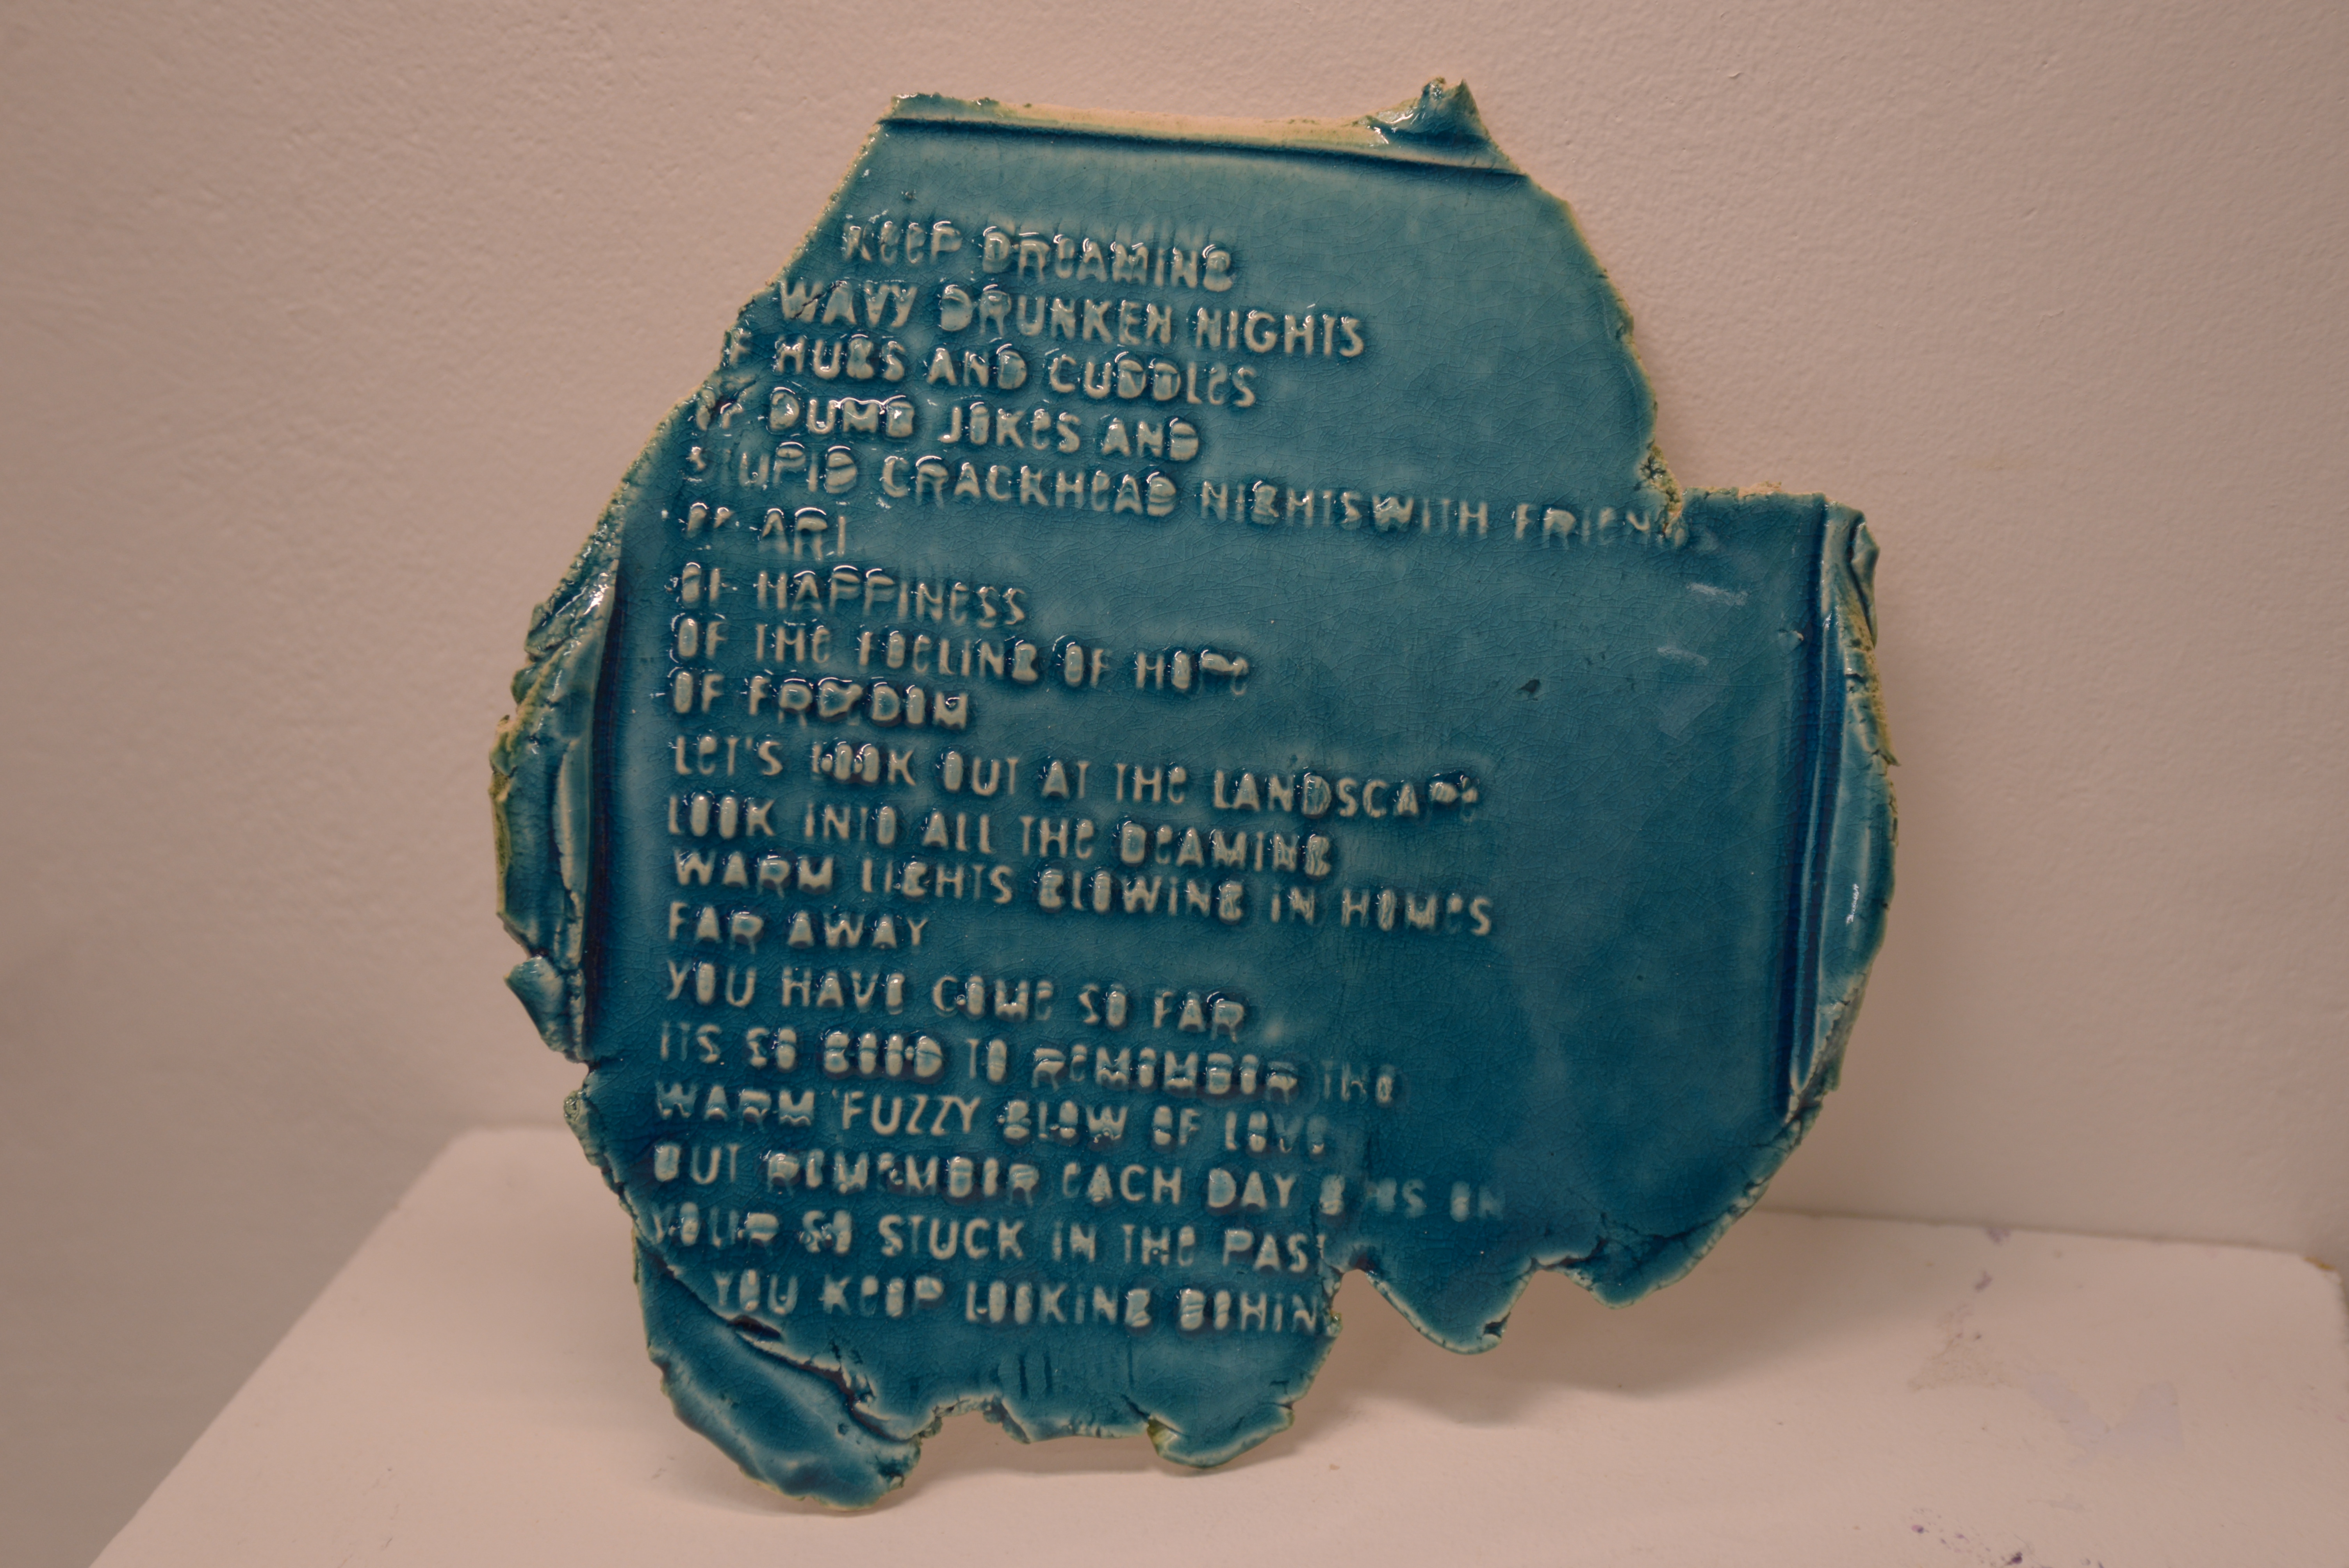 KEEP DREAMING
WAVY DRUNKEN NIGHTS
OF HUGS AND CUDDLES
OF DUMB JOKES AND
STUPID CRACKHEAD NIGHTS WITH FRIENDS
OF ART
OF HAPPINESS
OF THE FEELING OF HOME
OF FREEDOM
LET'S LOOK OUT AT THE LANDSCAPE
LOOK INTO ALL THE BEAMING
WARM LIGHTS GLOWING IN HOMES
FAR AWAY
YOU HAVE COME SO FAR
ITS SO GOOD TO REMEMBER THE
WARM FUZZY GLOW OF LOVE
BUT REMEMBER EACH DAY
YOUR SO STUCK IN THE PAST
YOU KEEP LOOKING BEHIND